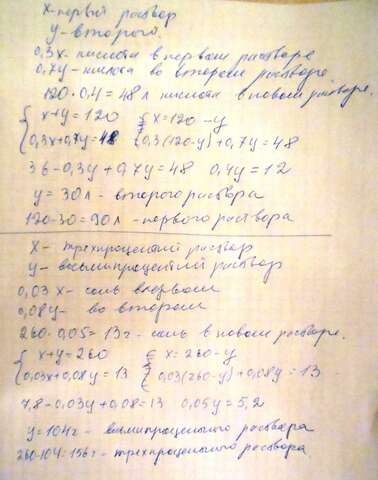 х-первый раствор
у-второго.
0,3х-кислота в первом растворе
0,7у-кислота во втором растворе.
120·0,4=48л кислота в новом растворе.
{ х+у=120 { х=120-у
{ 0,3х+0,7у=48 { 0,3(120-у)+0,7у=48
36-0,3у+0,7у=48 0,4у=12
у=30л-второго раствора
120-30=90л-первого раствора
х- трехпроцентный раствор
у- восьмипроцентный раствор
0,03х-соль в первом
0,08у- во втором
260·0,05=13г-соль в новом растворе.
{ х+у=260 { х=260-у
{ 0,03х+0,08у=13 { 0,03(260-у)+0,08у=13
7,8-0,03у+0,08=13 0,05у=5,2
у=104г- восьмипроцентного раствора
260-104=156г-трехпроцентного раствора.